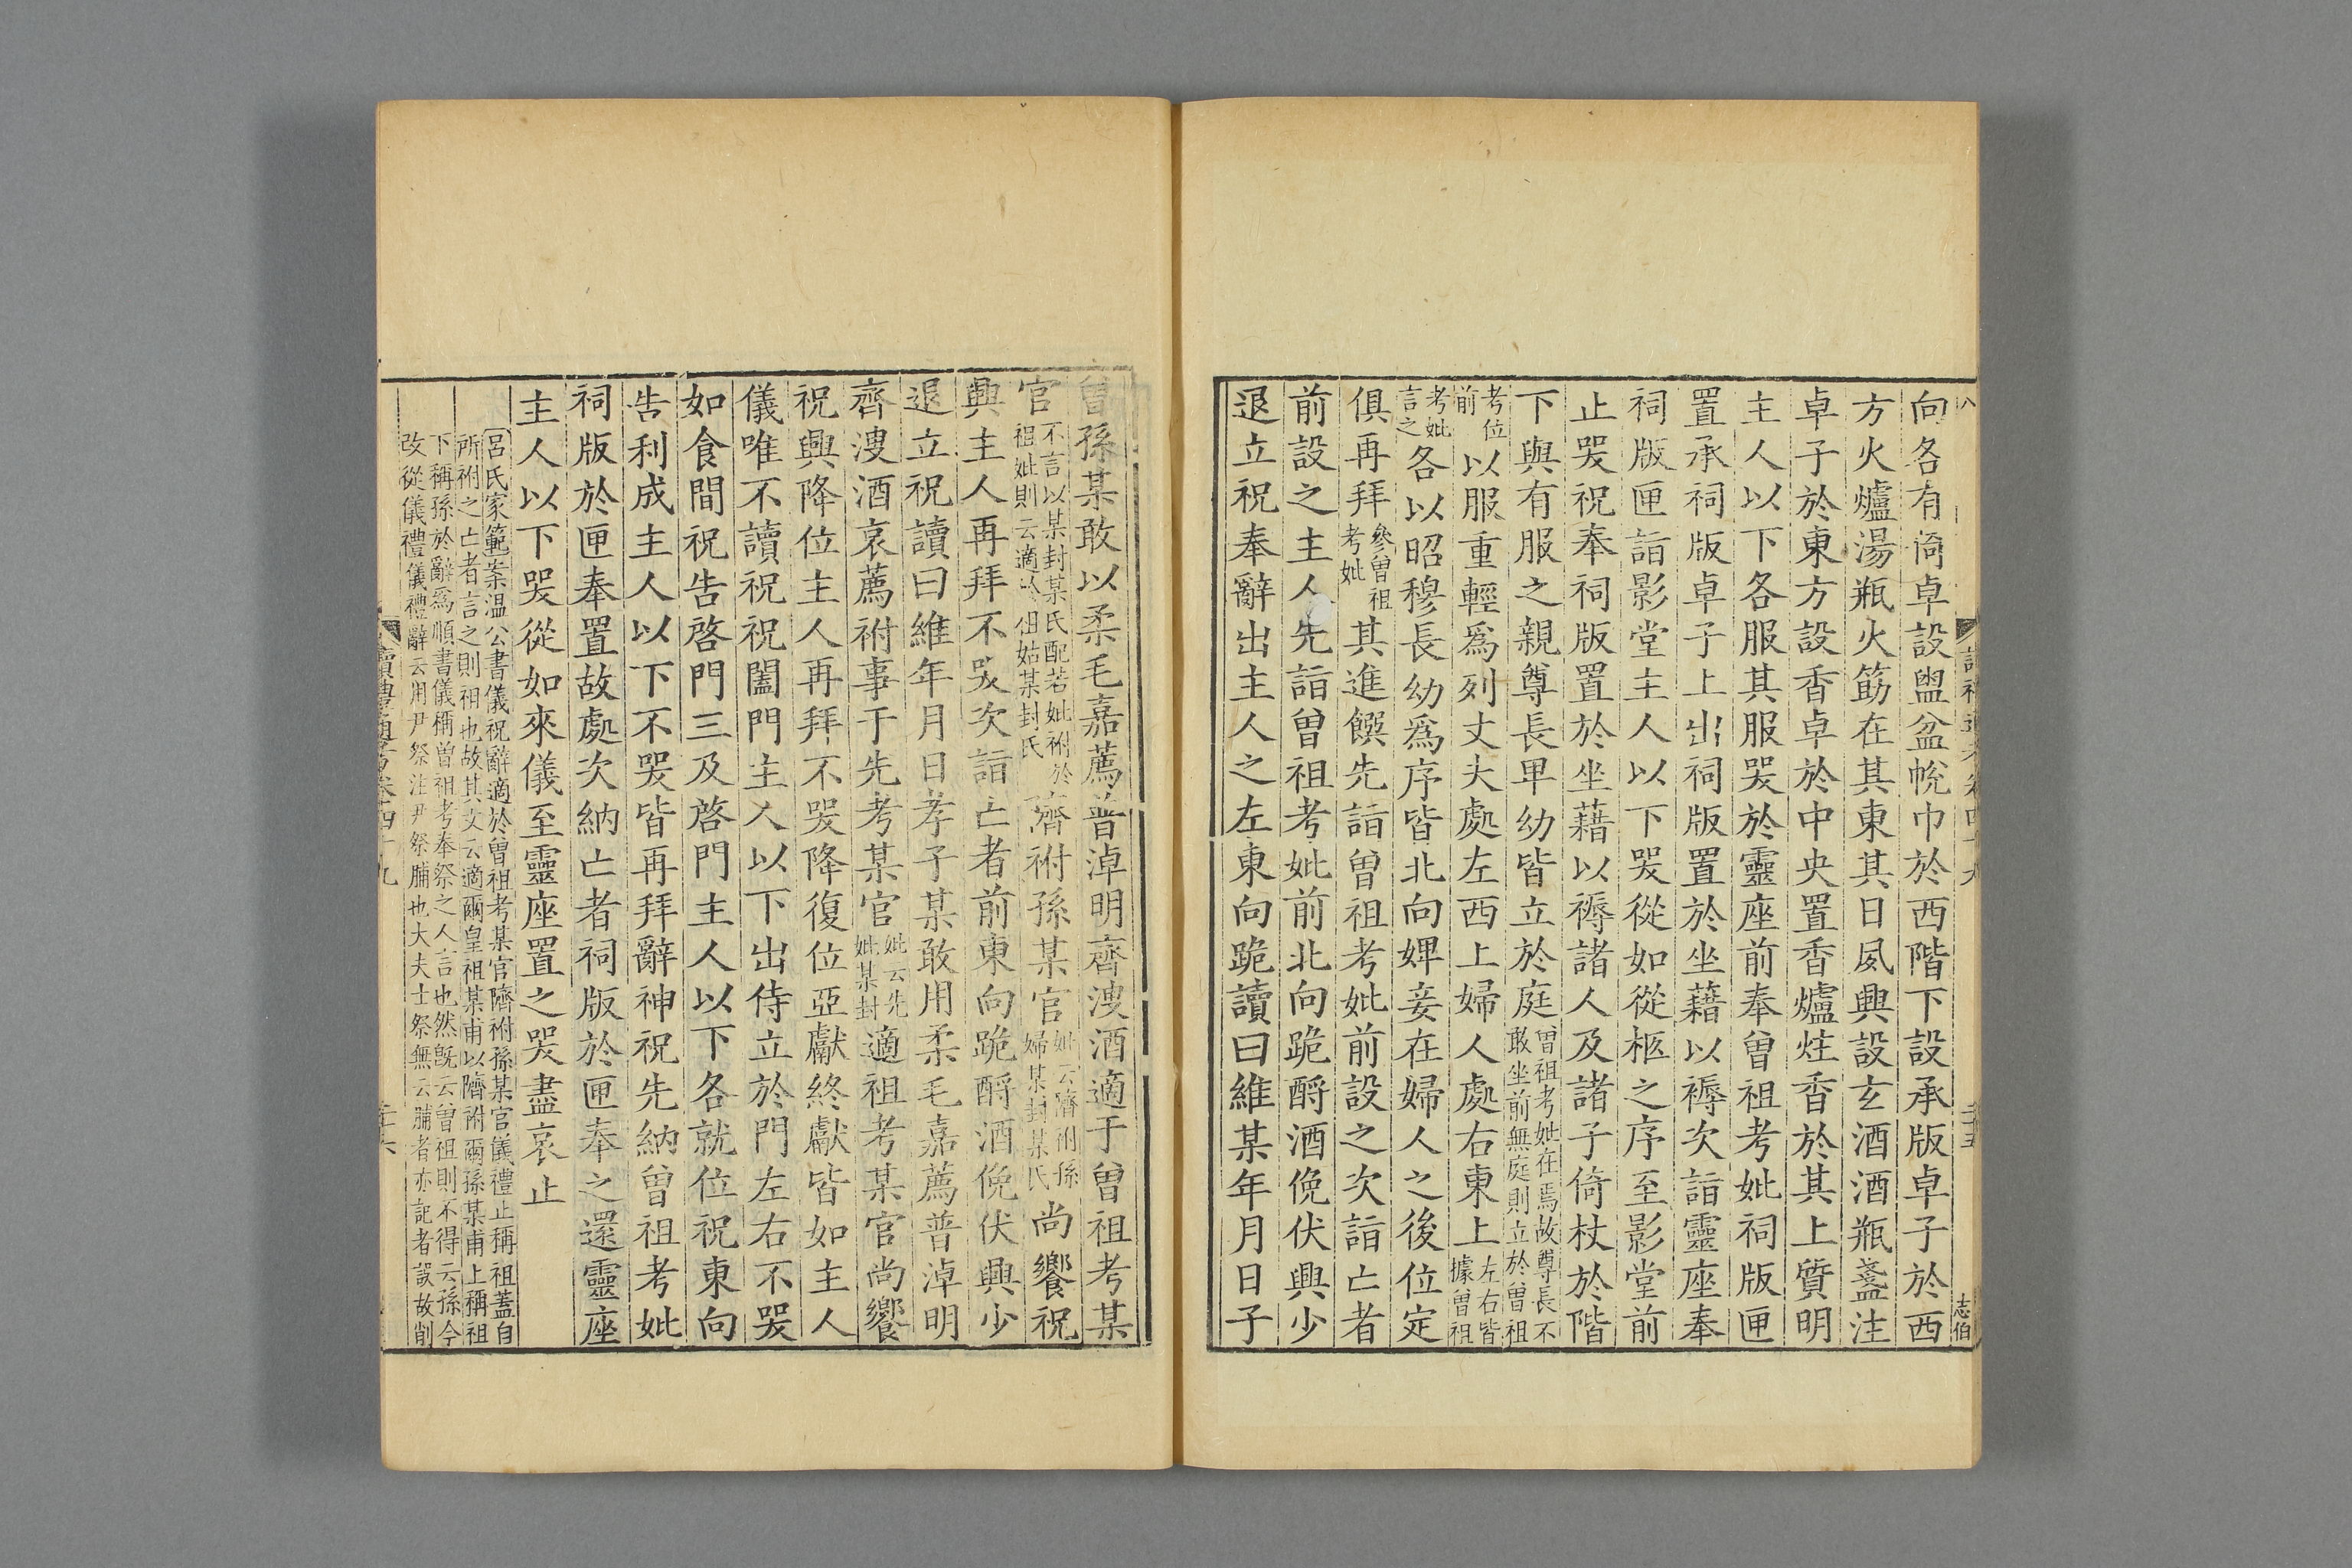 向各有倚卓設盥盆帨巾於西階下設承版卓子於西
方火爐湯瓶火筯在其東其日夙興設玄酒酒瓶盞注
卓子於東方設香卓於中央置香爐炷香於其上質明
主人以下各服其服哭於靈座前奉曾祖考妣祠版匣
置承祠版卓子上出祠版置於坐藉以褥次詣靈座奉
祠版匣詣影堂主人以下哭從如從柩之序至影堂前
止哭祝奉祠版置於坐藉以褥諸人及諸子倚杖於階
下與有服之親尊長卑幼皆立於庭曾祖考妣在焉故尊長不敢坐前無庭則立於曾祖
考位前以服重輕爲列丈夫處左西上婦人處右東上左右皆據曾祖
考妣言之各以昭穆長幼爲序皆北向婢妾在婦人之後位定
俱再拜參曾祖考妣其進饌先詣曾祖考妣前設之次詣亡者
前設之主人先詣曾祖考妣前北向跪酹酒俛伏興少
退立祝奉辭出主人之左東向跪讀曰維某年月日子
志伯
曾孫某敢以柔毛嘉薦普淖明齊溲酒適于曾祖考某
官不言以某封某氏配若妣祔於祖妣則云適祖姑某封氏隮祔孫某官妣云隮祔孫婦某封某氏尚饗祝
興主人再拜不哭次詣亡者前東向跪酹酒俛伏興少
退立祝讀曰維年月日孝子某敢用柔毛嘉薦普淖明
齊溲酒哀薦祔事于先考某官妣云先妣某封適祖考某官尚饗
祝興降位主人再拜不哭降復位亞獻終獻皆如主人
儀唯不讀祝祝闔門主人以下出侍立於門左右不哭
如食間祝告啓門三及啓門主人以下各就位祝東向
告利成主人以下不哭皆再拜辭神祝先納曾祖考妣
祠版於匣奉置故處次納亡者祠版於匣奉之還靈座
主人以下哭從如來儀至靈座置之哭盡哀止
呂氏家範案温公書儀祝辭適於曾祖考某官隮祔孫某官儀禮止稱祖蓋自
所祔之亡者言之則祖也故其文云適爾皇祖某甫以隮祔爾孫某甫上稱祖
下稱孫於辭爲順書儀稱曾祖考奉祭之人言也然旣云曾祖則不得云孫今
改從儀禮儀禮辭云用尹祭注尹祭脯也大夫士祭無云脯者亦記者誤故削
讀禮通考卷四十九